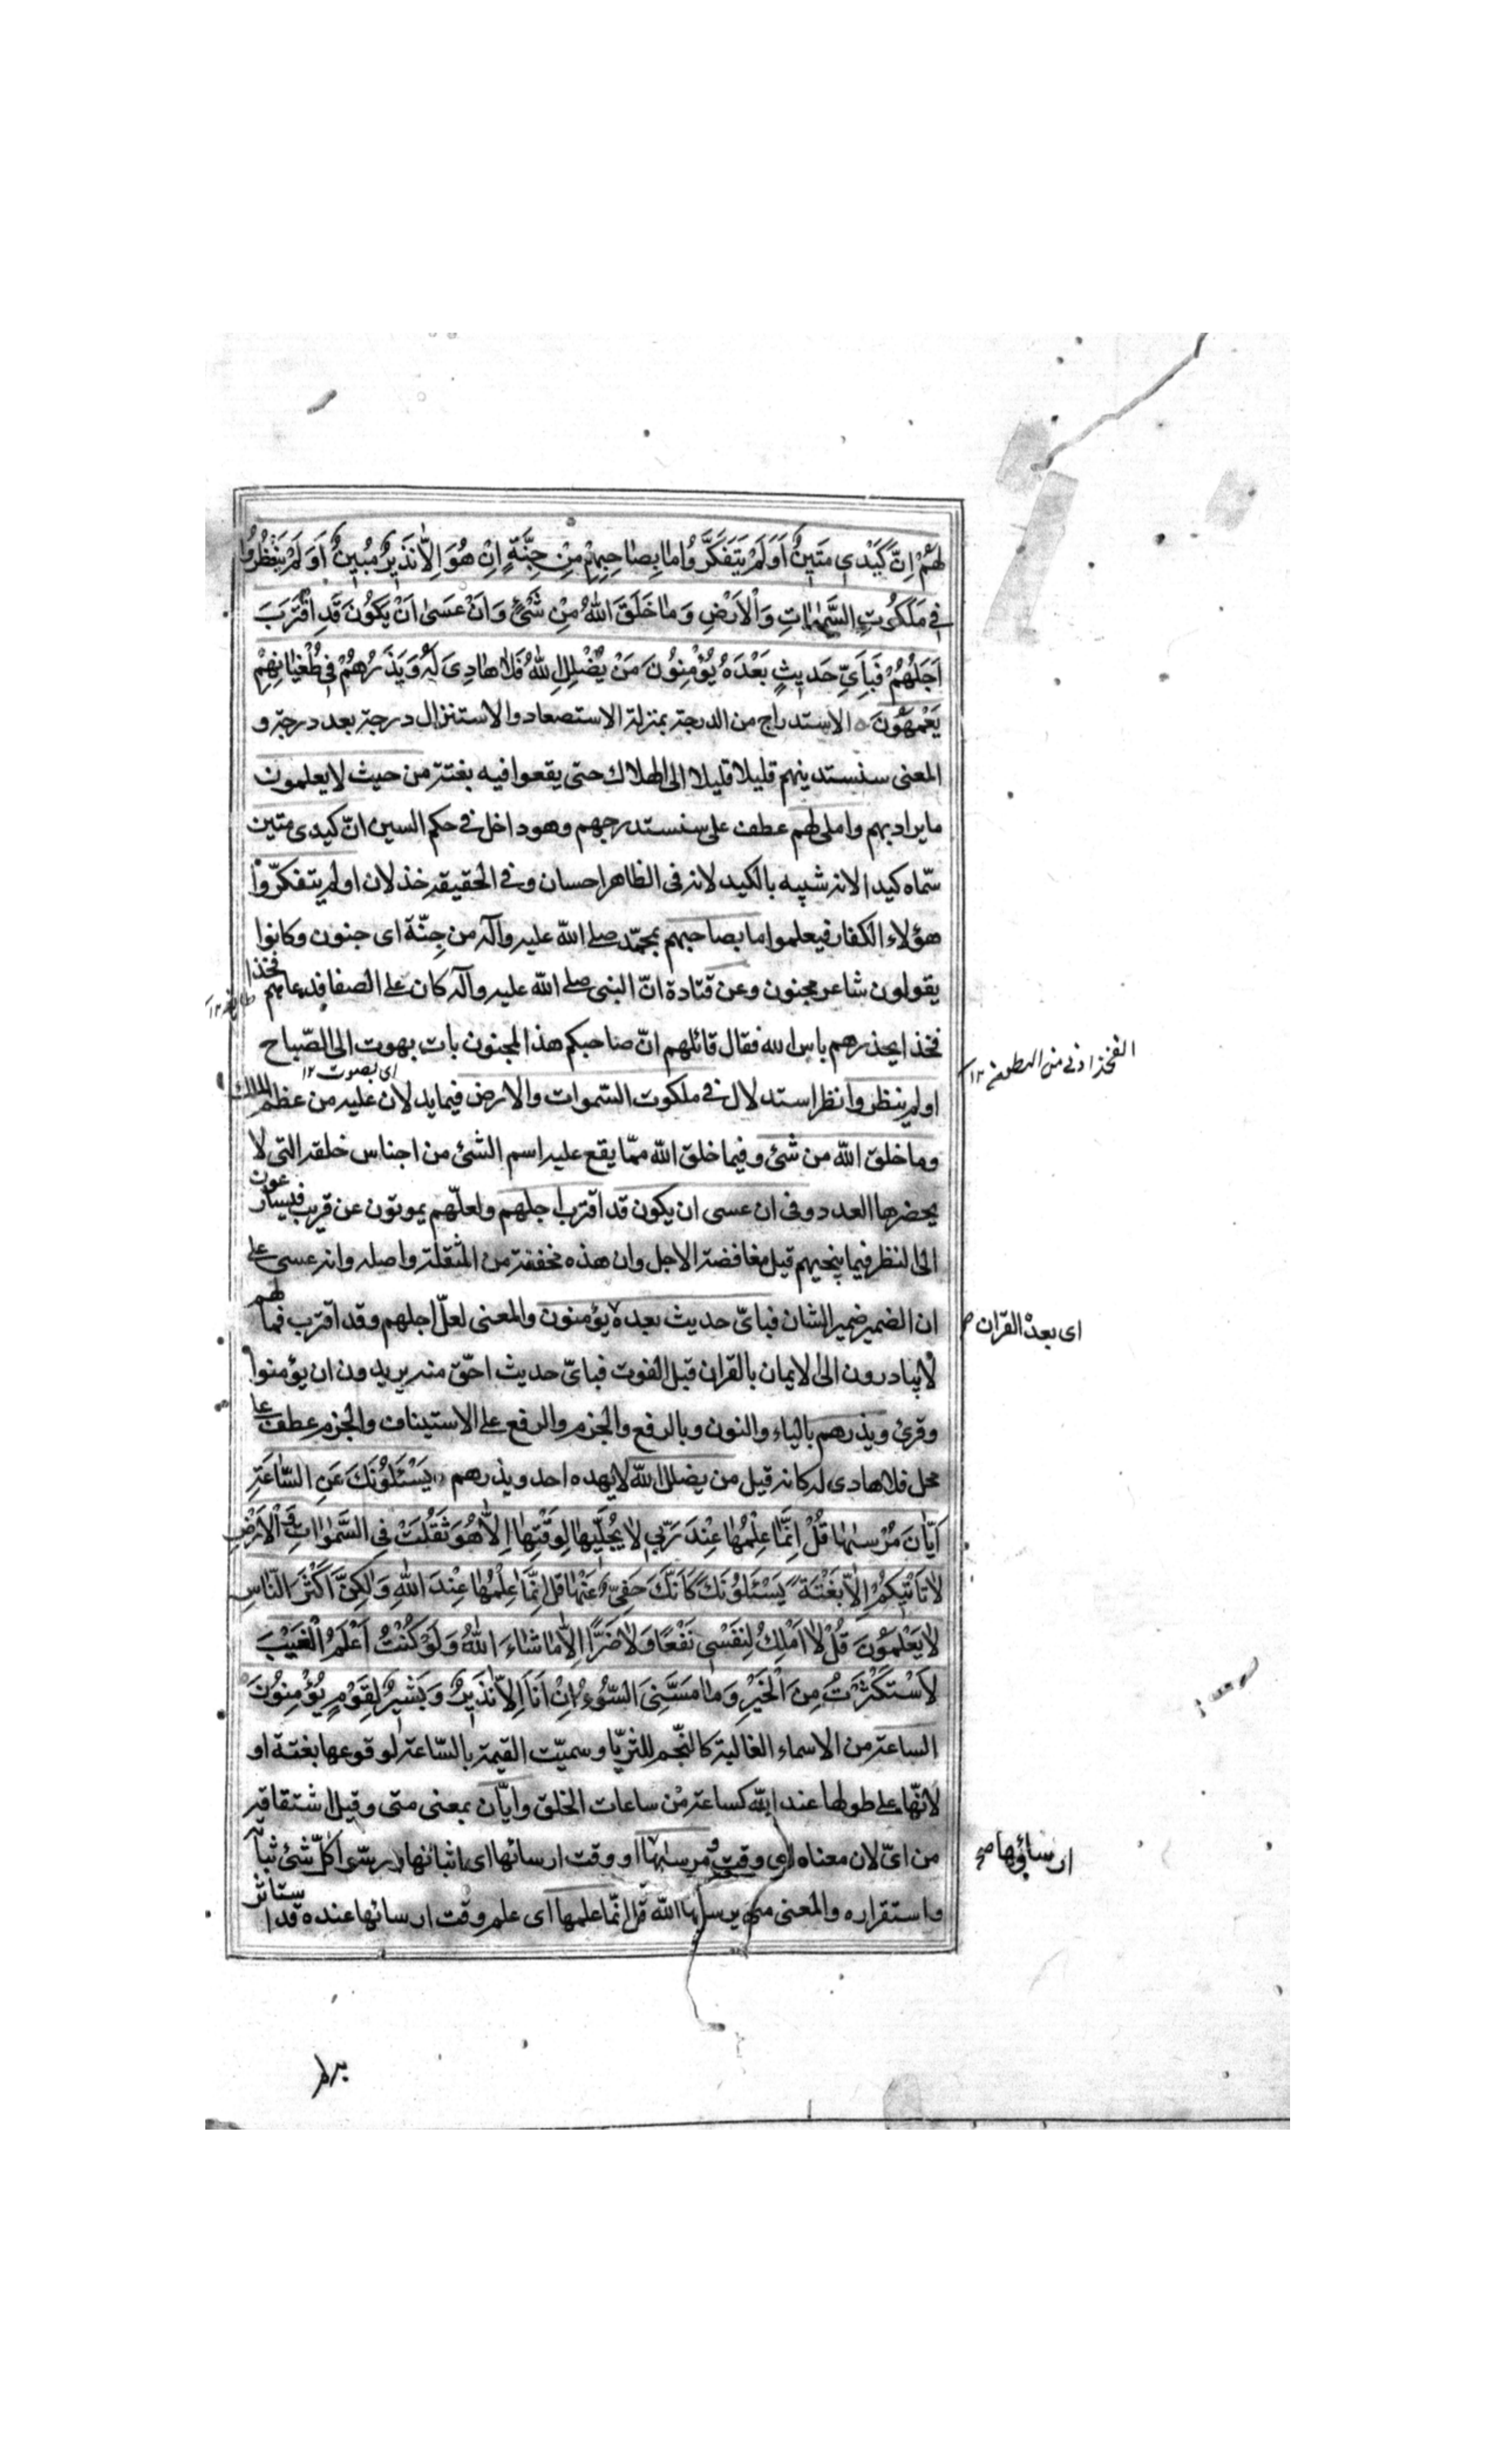 لَهُمْ اِنَّ كَيْدى مَتينٌ اَوَلَمْ يَتَفَكَّرُوا ما بِصاحِبِهِمْ مِنْ جِنَّةٍ اِنْ هُوَ اِلاّ نَذيرٌ مُبينٌ اَوَلَمْ يَنْظُرُوا
فى مَلَكُوتِ السَّمٰواتِ وَالْاَرْضِ وَما خَلَقَ اللّٰهُ مِنْ شَىْءٍ وَاَنْ عَسىٰ اَنْ يَكُونَ قَدِ اقْتَرَبَ
اَجَلُهُمْ فَبِاَىِّ حَديثٍ بَعْدَهُ يُؤْمِنُونَ مَنْ يُضْلِلِ اللّٰهُ فَلا هادِىَ لَهُ وَيَذَرُهُمْ فى طُغْيانِهِمْ
يَعْمَهُونَ الاستدراج من الدرجة بمنزلة الاستصعاد والاستنزال درجة بعد درجة و
المعنى سنستدينهم قليلا قليلا الى الهلاك حتى يقعوا فيه بغتة من حيث لا يعلمون
ما يراد بهم واملى لهم عطف على سنستدرجهم وهو داخل فى حكم السين انّ كيدى متين
سمّاه كيدا لانه شبيه بالكيد لانه فى الظاهر احسان وفى الحقيقة خذلان اولم يتفكّروا
هؤلاء الكفار فيعلموا ما بصاحبهم بمحمّد صلى اللّه عليه وآله من جِنّة اى جنون وكانوا
يقولون شاعر مجنون وعن قتادة انّ النبى صلى اللّه عليه وآله كان على الصفا فدعاهم فخذا
فخذا يحذرهم باس الله فقال قائلهم انّ صاحبكم هذا لمجنون بات يهوت الى الصّباح
اى يصوت ١٢
الفخذ ادنى من البطن ١٢
اولم ينظروا نظر استدلال فى ملكوت السّموات والارض فيما يدلان عليه من عظم الملك
وما خلق اللّه من شئ وفيما خلق اللّه ممّا يقع عليه اسم الشئ من اجناس خلقه التى لا
يحضرها العدد وفى ان عسى ان يكون قد اقترب اجلهم ولعلّهم يموتون عن قريب فيسارعون
الى النظر فيما ينجيهم قبل مغافضة الاجل وان هذه مخففة من المثقلة واصله وانه عسى على
ان الضمير ضمير الشان فباىّ حديث بعده يؤمنون والمعنى لعلّ اجلهم وقد اقترب فما لهم
اى بعد القران
لا يبادرون الى الايمان بالقران قبل الفوت فباىّ حديث احّق منه يريدون ان يؤمنوا
وقرئ ويذرهم بالياء والنون وبالرفع والجزم والرفع على الاستيناف والجزم عطف على
محل فلا هادى له كانه قيل من يضلل اللّه لا يهده احد ويذرهم يَسْئَلُونَكَ عَنِ السّاعَةِ
اَيّانَ مُرْسٰيها قُلْ اِنَّما عِلْمُها عِنْدَ رَبّى لا يُجَلّيها لِوَقْتِها اِلاّ هُوَ ثَقُلَتْ فِى السَّمٰواتِ وَالْاَرْضِ
لا تَاْتيكُمْ اِلاّ بَغْتَةً يَسْئَلُونَكَ كَاَنَّكَ حَفِىٌّ عَنْها قُلْ اِنَّما عِلْمُها عِنْدَ اللّٰهِ وَلٰكِنَّ اَكْثَرَ النّاسِ
لا يَعْلَمُونَ قُلْ لا اَمْلِكُ لِنَفْسى نَفْعًا وَلا ضَرًّا اِلاّ ما شاءَ اللّٰهُ وَلَوْ كُنْتُ اَعْلَمُ الْغَيْبَ
لَاسْتَكْثَرْتُ مِنَ الْخَيْرِ وَما مَسَّنِىَ السُّوءُ اِنْ اَنَا اِلاّ نَذيرٌ وَبَشيرٌ لِقَوْمٍ يُؤْمِنُونَ
الساعة من الاسماء الغالبة كالنّجم للثريّا وسميّت القيمة بالسّاعة لوقوعها بغتة او
لانّها على طولها عند اللّه كساعة من ساعات الخلق وايّان بمعنى متى وقيل اشتقاقه
من اىّ لان معناه اى وقت مرسٰيها او وقت ارسائها اى اثباتها كلّ شئ ثباته
ارساؤها صح
واستقراره والمعنى متى يرسيها اللّه قل انّما علمها اى علم وقت ارسائها عنده قد استاثر